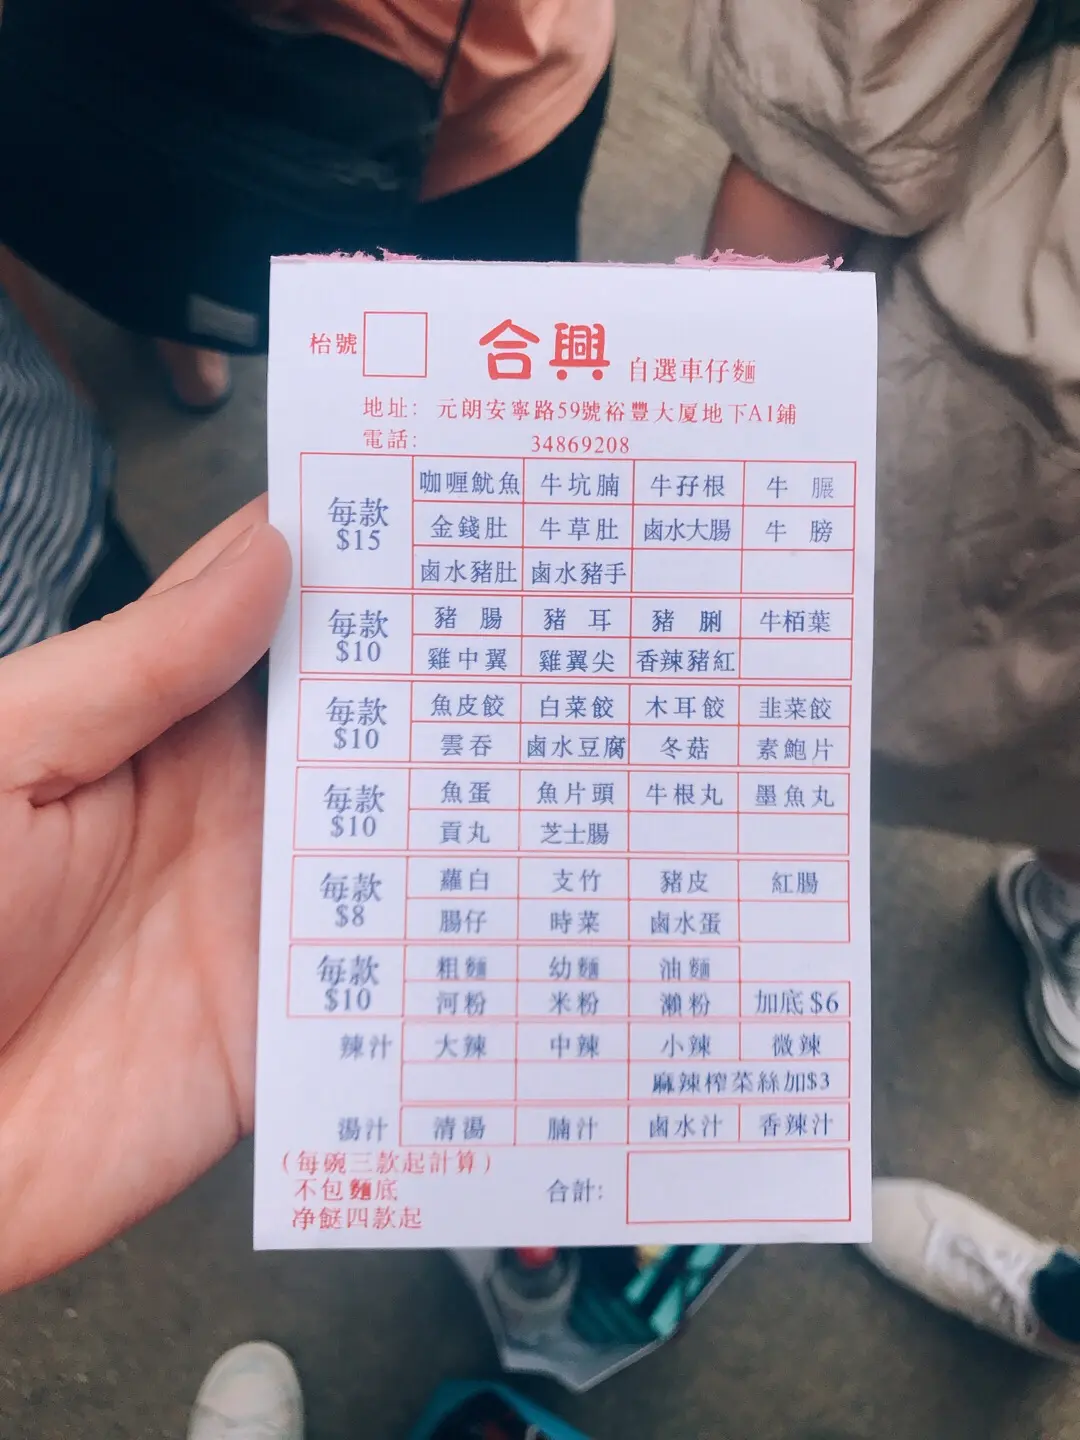 枱號 合興 自選車仔麵
地址: 元朗安寧路59號裕豐大厦地下A1鋪
電話: 34869208
每款 $15
咖喱魷魚 牛坑腩 牛孖根 牛 𦟌
金錢肚 牛草肚 鹵水大腸 牛 膀
鹵水豬肚 鹵水豬手
每款 $10
豬 腸 豬 耳 豬 脷 牛栢葉
雞中翼 雞翼尖 香辣豬紅
每款 $10
魚皮餃 白菜餃 木耳餃 韭菜餃
雲吞 鹵水豆腐 冬菇 素鮑片
每款 $10
魚蛋 魚片頭 牛根丸 墨魚丸
貢丸 芝士腸
每款 $8
蘿白 支竹 豬皮 紅腸
腸仔 時菜 鹵水蛋
每款 $10
粗麵 幼麵 油麵
河粉 米粉 瀨粉 加底 $6
辣汁 大辣 中辣 小辣 微辣
麻辣榨菜絲加$3
湯汁 清湯 腩汁 鹵水汁 香辣汁
(每碗三款起計算)
不包麵底 合計:
净餸四款起